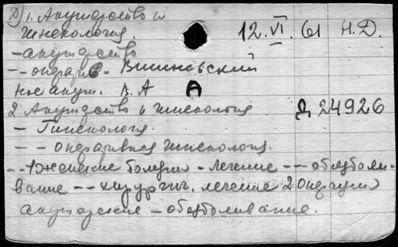 Д) 1. Акушерство и
гинекология. 12.VI.61 Н.Д.
– акушерство
– – оператив- Вишневский
ное акуш. В. А А
2 Акушерство и гинекология Д 24926
– Гинекология
– – оперативная гинекология.
– – Женские болезни – лечение – – обезболи-
вание – – хирургич. лечение 2 Операции
акушерские – обезболивание.